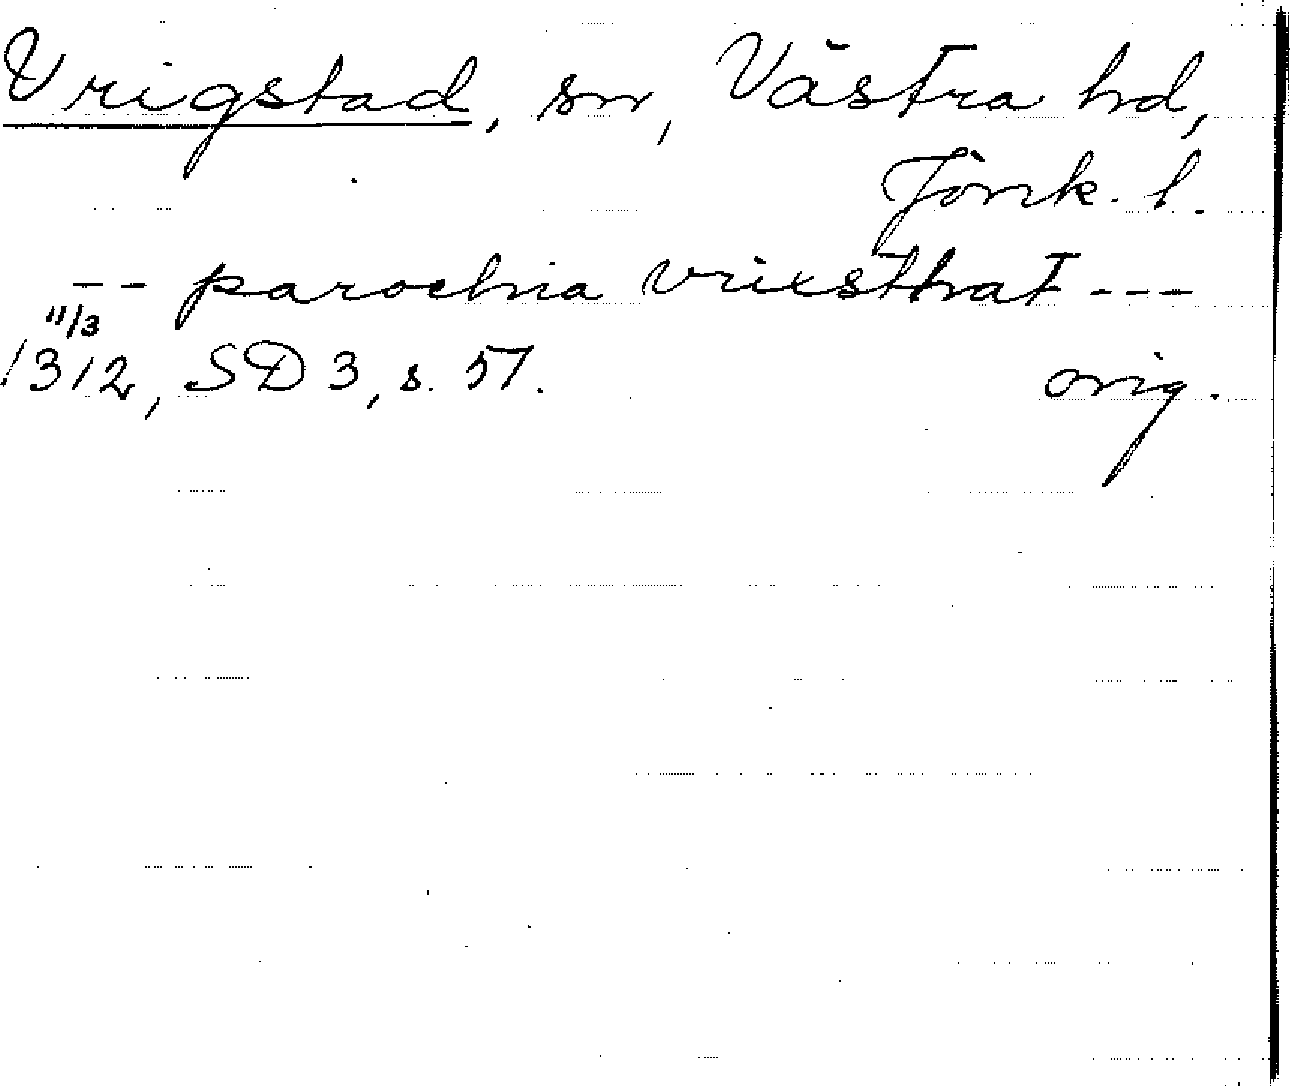 Vrigstad, sn, Västra hd,
Jönk. l.
-- parochia vrixsthat ---
11/3
1312, SD 3, s. 57. orig.